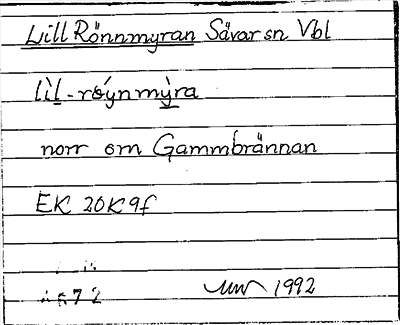 Lill Rönnmyran Sävar sn Vbl
lìl-röýnmỳra
norr om Gammbrännan
EK 20K9f
1992